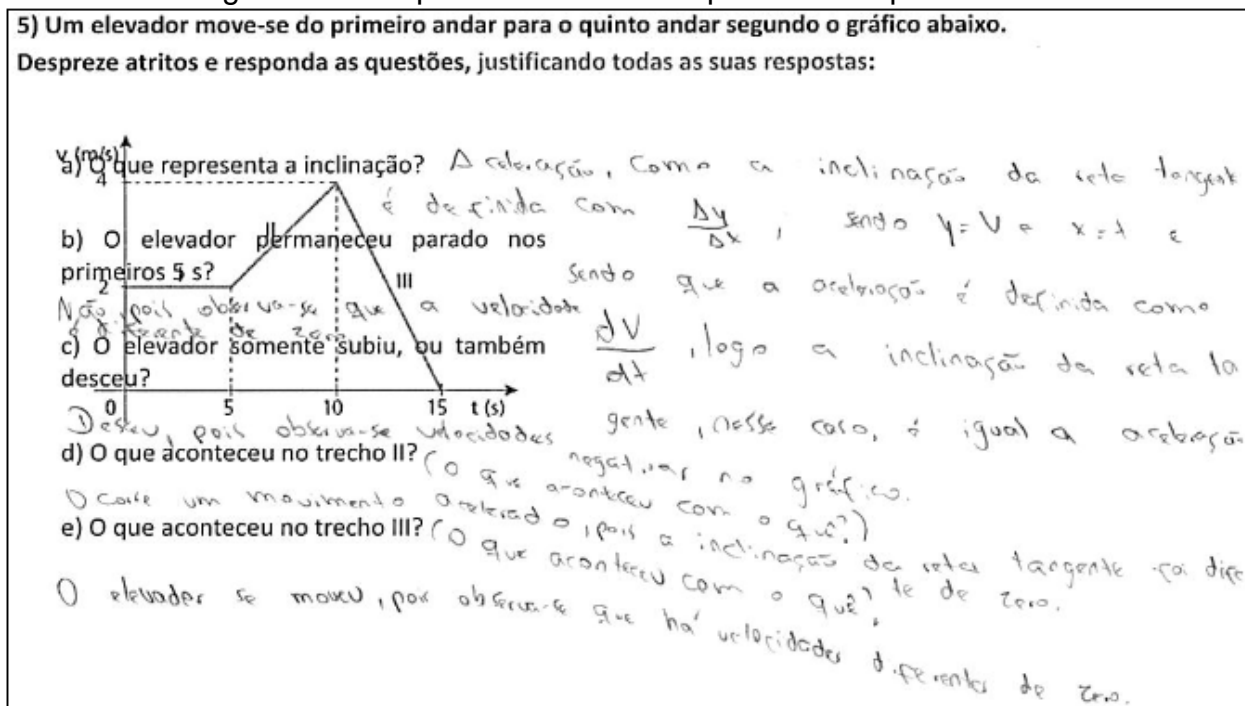 5) Um elevador move-se do primeiro andar para o quinto andar segundo o gráfico abaixo.
Despreze atritos e responda as questões, justificando todas as suas respostas:
v (m/s)
4
2
0 5 10 15 t (s)
II
III
a) O que representa a inclinação? A aceleração, Como a inclinação da reta tangent
é definida com Δy/Δx, sendo y=V e x=t e
sendo que a aceleração é definida como
dV/dt, logo a inclinação da reta ta
gente, nesse caso, é igual a aceleração
b) O elevador permaneceu parado nos
primeiros 5 s?
Não, pois observa-se que a velocidade
é diferente de zero
c) O elevador somente subiu, ou também
desceu?
Desceu, pois observa-se velocidades negativas no gráfico.
d) O que aconteceu no trecho II? (O que aconteceu com o quê?)
Ocorre um movimento acelerado, pois a inclinação da reta tangente foi dife
te de zero.
e) O que aconteceu no trecho III? (O que aconteceu com o quê?
O elevador se moveu, pois observa-se que há velocidades diferentes de zero.